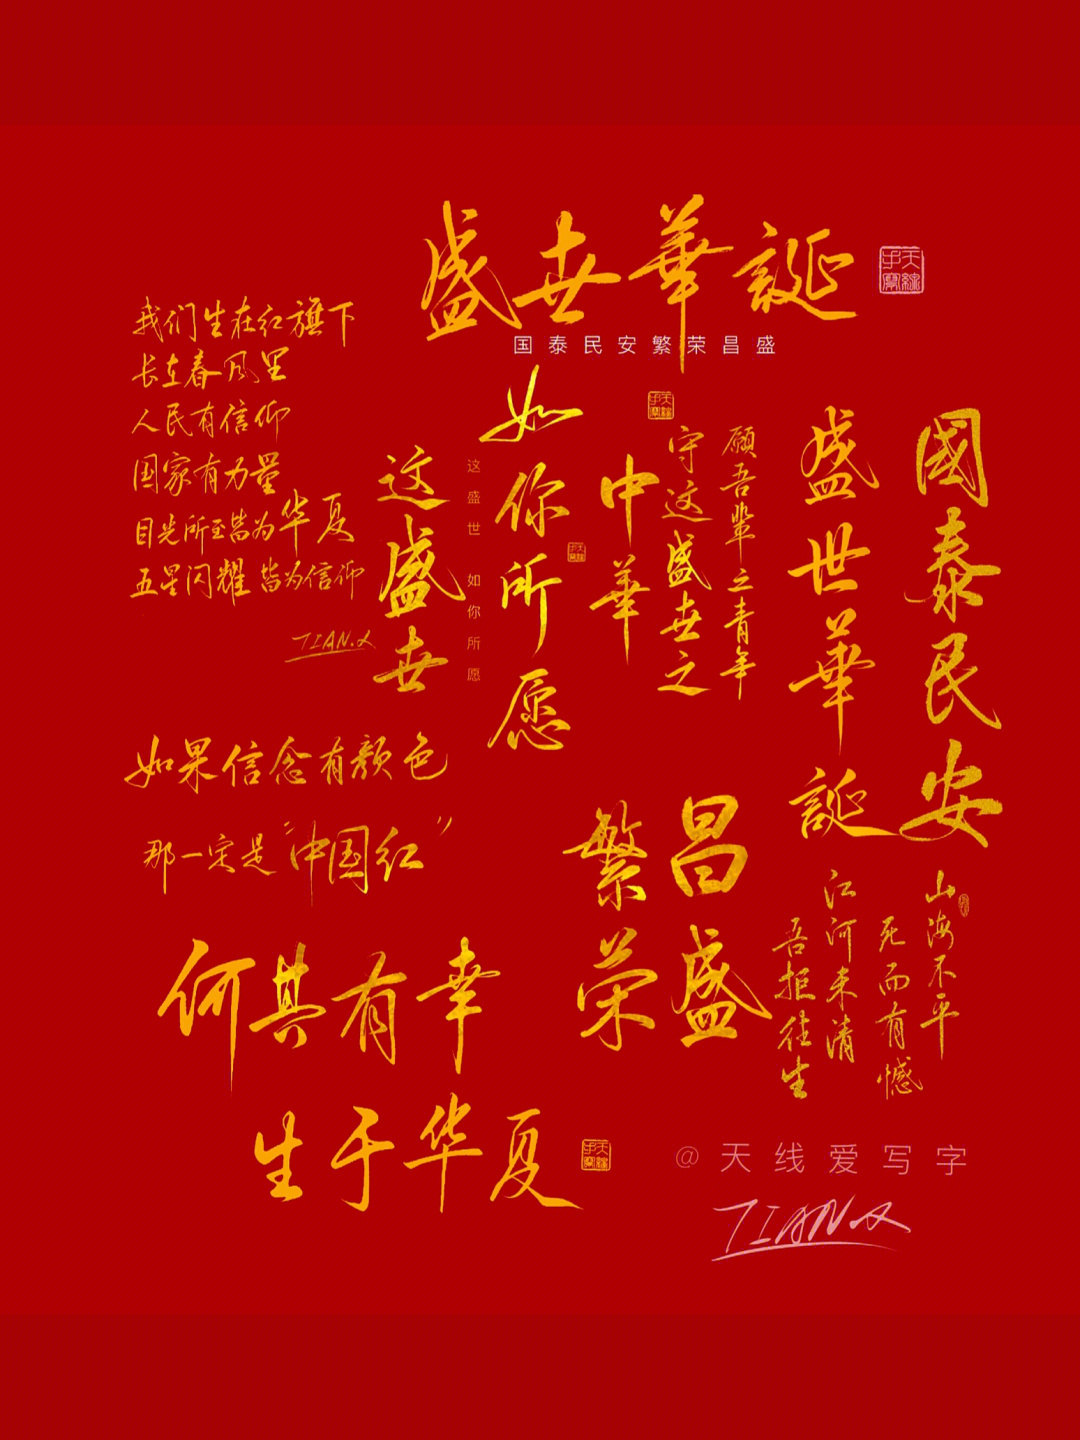 盛世華誕
国泰民安繁荣昌盛
我们生在红旗下
长在春风里
人民有信仰
国家有力量
目光所至皆为华夏
五星闪耀皆为信仰
TIAN.X
这盛世
如你所愿
这盛世 如你所愿
愿吾辈之青年
守这盛世之
中華
盛世華誕
國泰民安
如果信念有颜色
那一定是“中国红”
昌盛
繁荣
山海不平
死而有憾
江河未清
吾拒往生
何其有幸
生于华夏
@天线爱写字
TIANX